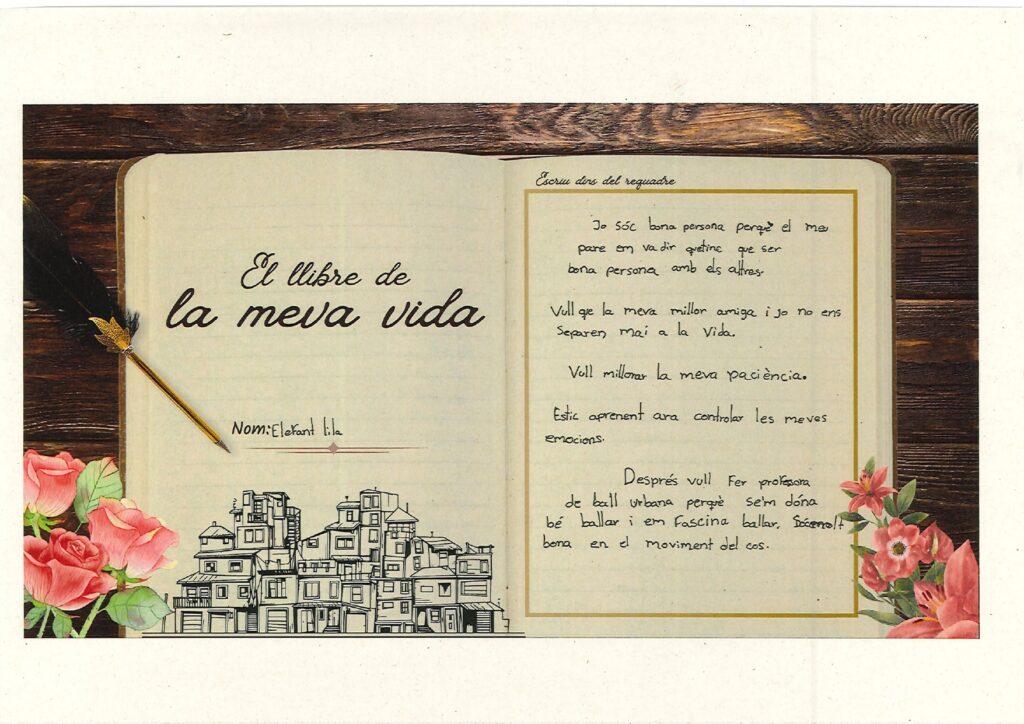 El llibre de
la meva vida
Nom: Elefant lila
Escriu dins del requadre
Jo sóc bona persona perquè el meu
pare em va dir quetinc que ser
bona persona amb els altres.
Vull qe la meva millor amiga i jo no ens
separen mai a la vida.
Vull millorar la meva paciència.
Estic aprenent ara controlar les meves
emocions.
Després vull Fer profesora
de ball urbana perquè se'm dóna
bé ballar i em Fascina ballar,
bona en el moviment del cos.